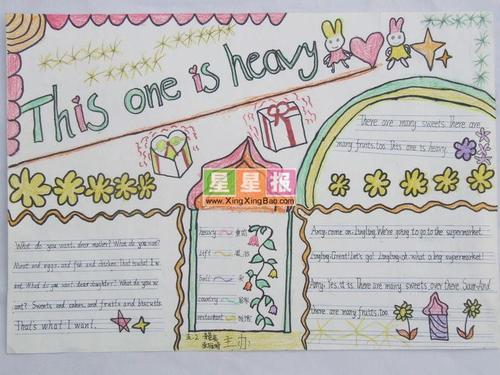 This one is heavy
There are many sweets. There are
many fruits, too. This one is heavy.
星星报
www.XingXingBao.com
What do you want, dear mother? What do you want?
Meat and eggs, and fish and chicken. That is what I w
ant. What do you want, dear daughter? What do you w
ant? Sweets and cakes, and fruits and biscuits.
That's what I want.
heavy
lift
country
restaurant
Amy: come on, Lingling. We're going to go to the supermarket.
Lingling: Great! Let's go! Lingling: oh, what a big supermarket!
Amy: Yes, it is. There are many sweets over there. Sam: And
there are many fruits, too.
主办